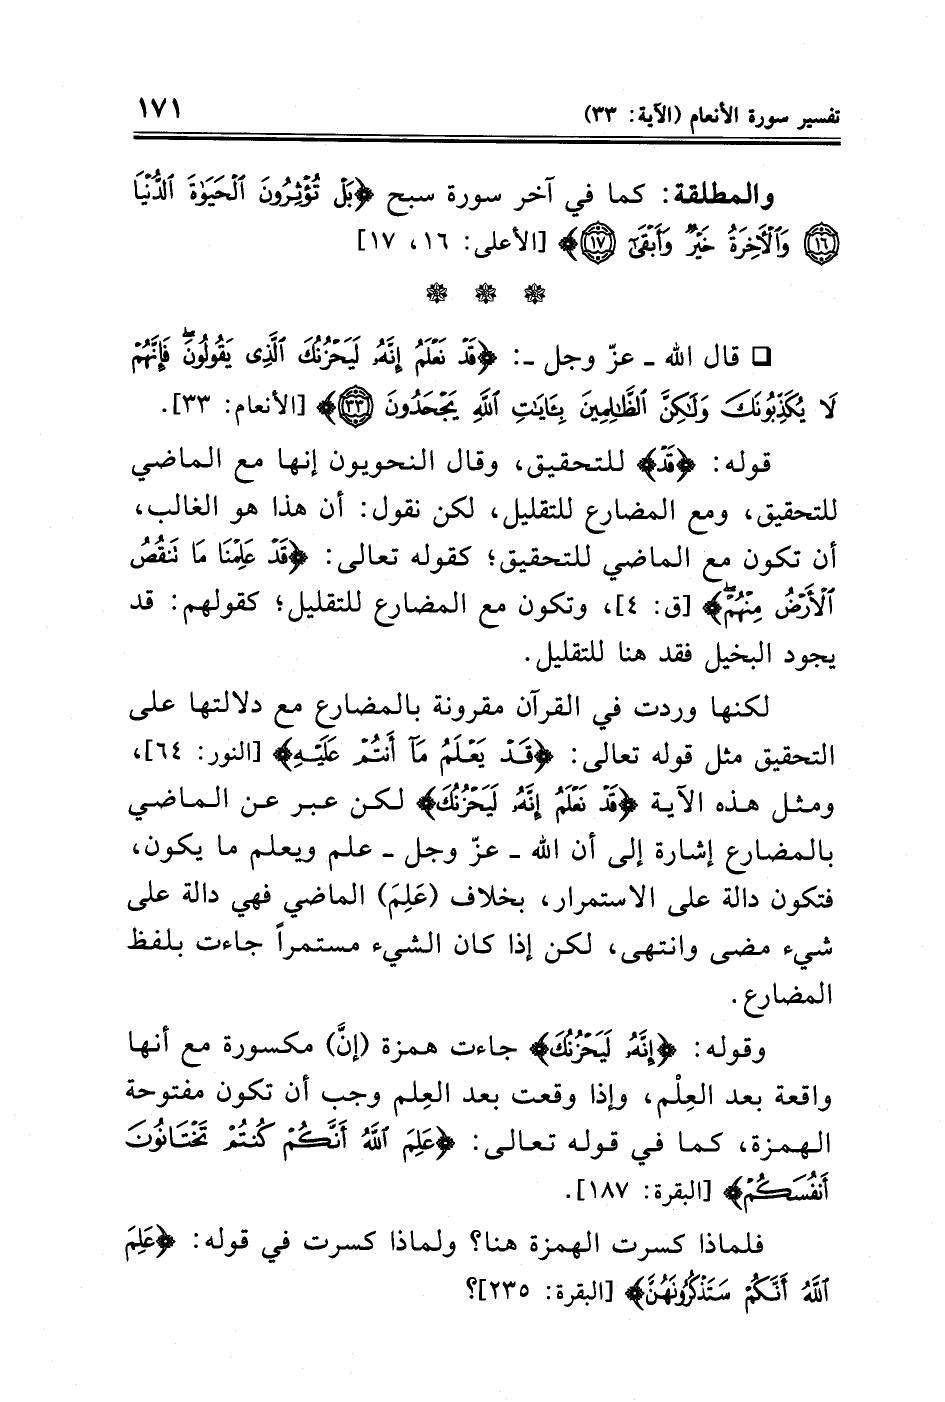 تفسير سورة الأنعام (الآية: ٣٣) ١٧١
والمطلقة: كما في آخر سورة سبح ﴿بَلْ تُؤْثِرُونَ ٱلْحَيَوٰةَ ٱلدُّنْيَا
١٦ وَٱلْأَخِرَةُ خَيْرٌ وَأَبْقَىٰٓ ١٧﴾ [الأعلى: ١٦، ١٧]
❁ ❁ ❁
❑ قال الله ـ عزّ وجل ـ: ﴿قَدْ نَعْلَمُ إِنَّهُۥ لَيَحْزُنُكَ ٱلَّذِى يَقُولُونَۖ فَإِنَّهُمْ
لَا يُكَذِّبُونَكَ وَلَٰكِنَّ ٱلظَّٰلِمِينَ بِـَٔايَٰتِ ٱللَّهِ يَجْحَدُونَ ٣٣﴾ [الأنعام: ٣٣].
قوله: ﴿قَدْ﴾ للتحقيق، وقال النحويون إنها مع الماضي
للتحقيق، ومع المضارع للتقليل، لكن نقول: أن هذا هو الغالب،
أن تكون مع الماضي للتحقيق؛ كقوله تعالى: ﴿قَدْ عَلِمْنَا مَا تَنقُصُ
ٱلْأَرْضُ مِنْهُمْۖ﴾ [ق: ٤]، وتكون مع المضارع للتقليل؛ كقولهم: قد
يجود البخيل فقد هنا للتقليل.
لكنها وردت في القرآن مقرونة بالمضارع مع دلالتها على
التحقيق مثل قوله تعالى: ﴿قَدْ يَعْلَمُ مَآ أَنتُمْ عَلَيْهِ﴾ [النور: ٦٤]،
ومثل هذه الآية ﴿قَدْ نَعْلَمُ إِنَّهُۥ لَيَحْزُنُكَ﴾ لكن عبر عن الماضي
بالمضارع إشارة إلى أن الله ـ عزّ وجل ـ علم ويعلم ما يكون،
فتكون دالة على الاستمرار، بخلاف (عَلِمَ) الماضي فهي دالة على
شيء مضى وانتهى، لكن إذا كان الشيء مستمراً جاءت بلفظ
المضارع.
وقوله: ﴿إِنَّهُۥ لَيَحْزُنُكَ﴾ جاءت همزة (إنَّ) مكسورة مع أنها
واقعة بعد العِلْم، وإذا وقعت بعد العِلم وجب أن تكون مفتوحة
الهمزة، كما في قوله تعالى: ﴿عَلِمَ ٱللَّهُ أَنَّكُمْ كُنتُمْ تَخْتَانُونَ
أَنفُسَكُمْ﴾ [البقرة: ١٨٧].
فلماذا كسرت الهمزة هنا؟ ولماذا كسرت في قوله: ﴿عَلِمَ
ٱللَّهُ أَنَّكُمْ سَتَذْكُرُونَهُنَّ﴾ [البقرة: ٢٣٥]؟